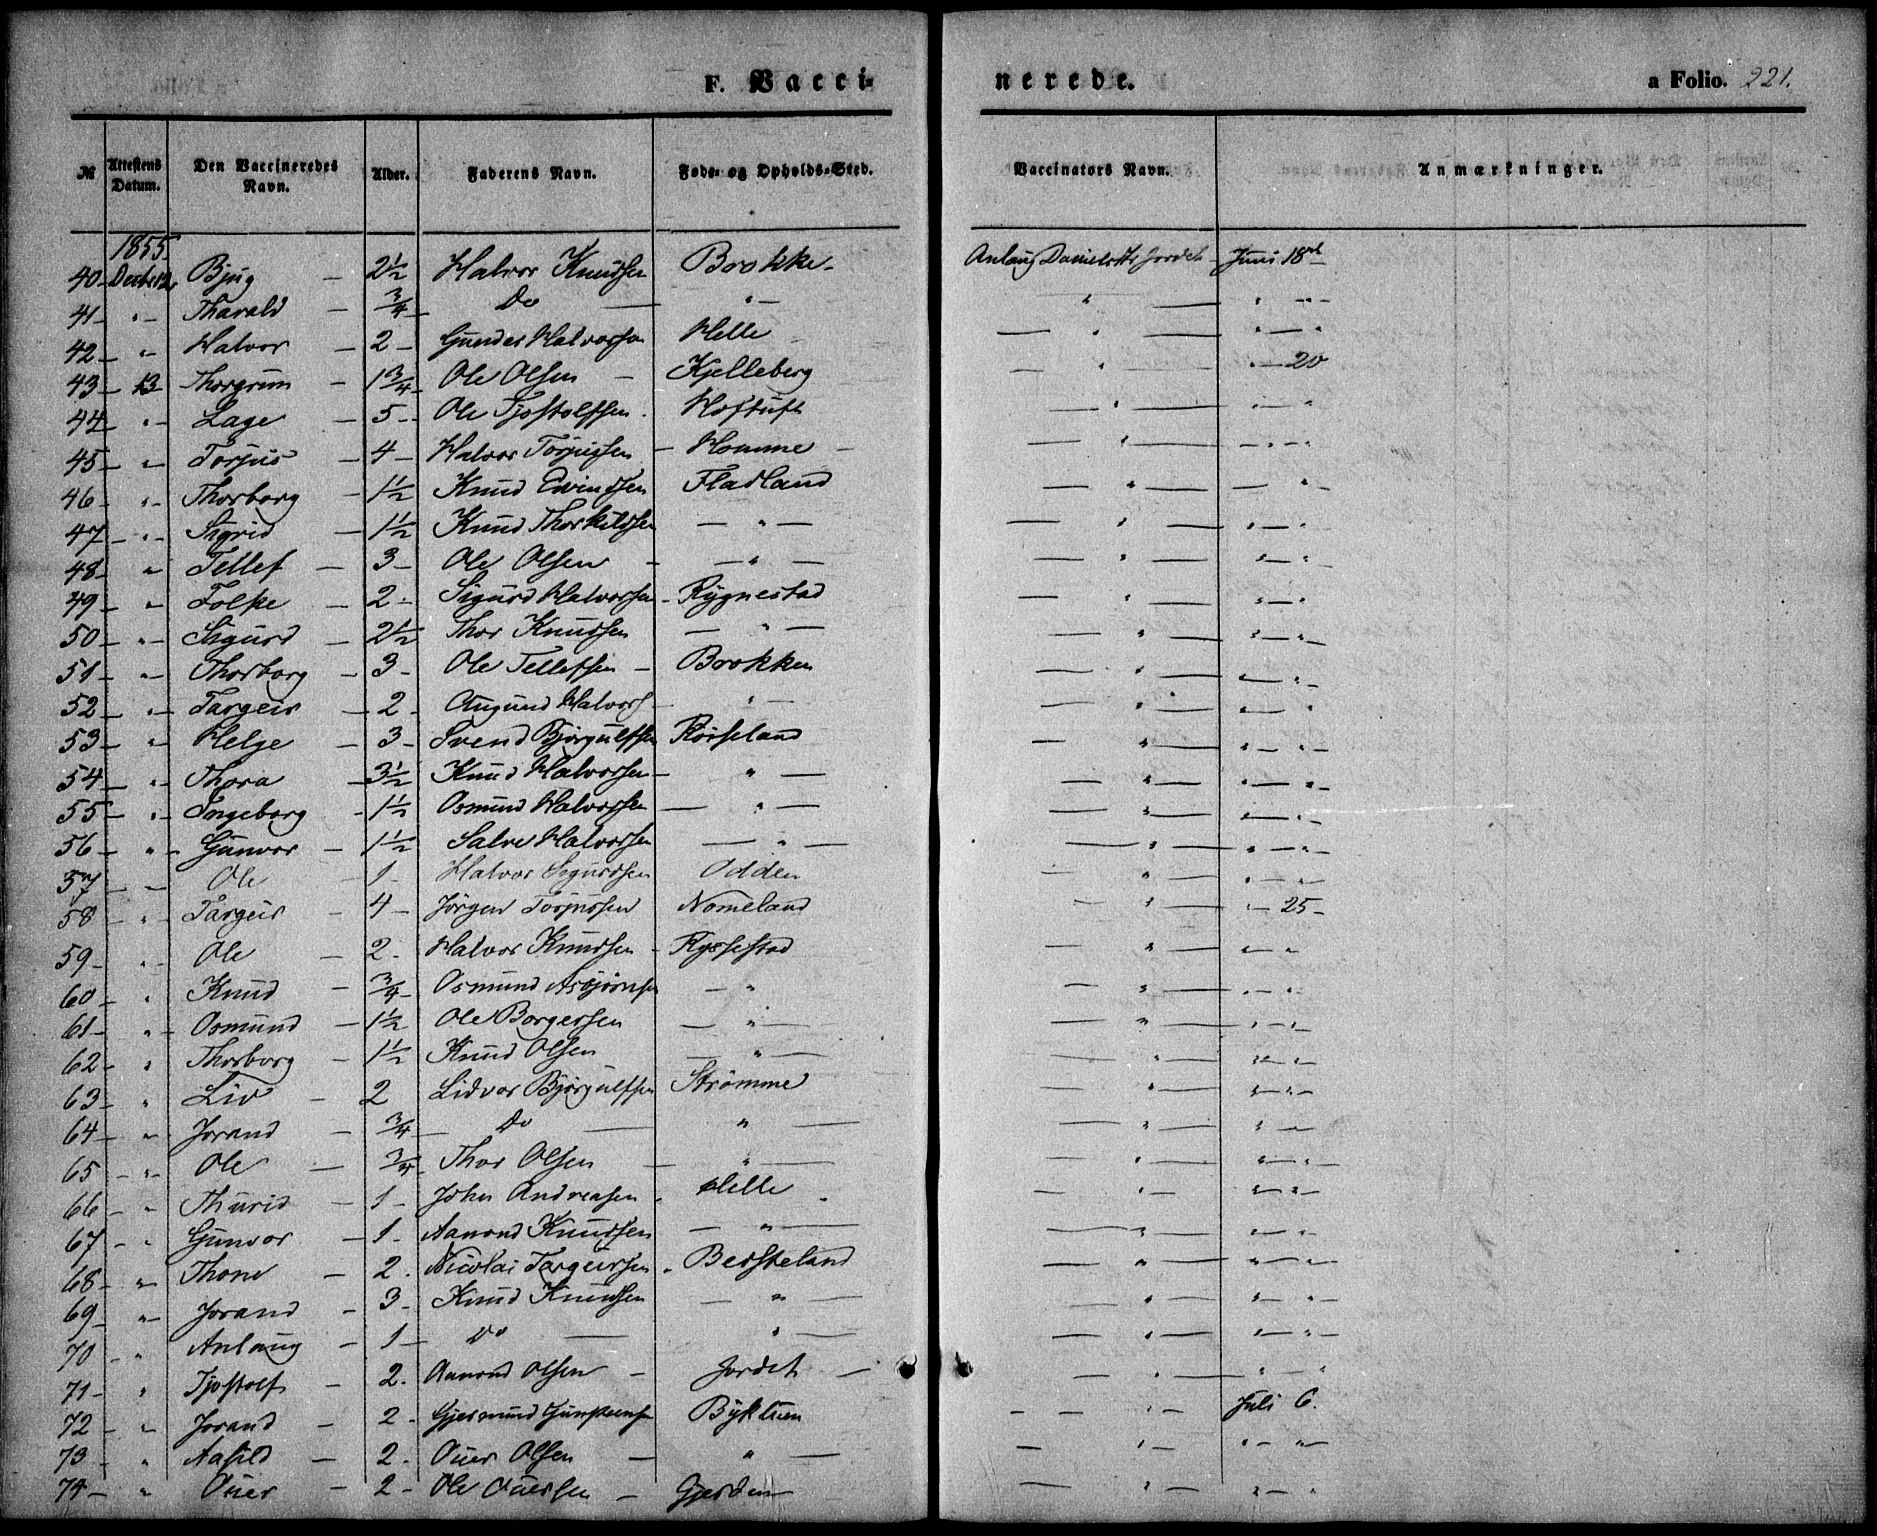 F. Vacci-
nerede.
a Folio. 221.
№ Attestens Datum. Den Vaccineredes Navn. Alder. Faderens Navn. Føde- og Opholds-Sted. Vaccinators Navn. Anmærkninger.
1855
40 Decbr 12 Bjug - 2½ Halvor Knudsen Brokke - Anlaug Danielsdtr Jordet Juni 18
41 - " - Tharald - ¾ - Do - " - " - " - " -
42 - " - Halvor - 2 - Gunder Halvorsen Helle - " - " - "
43 - 13 - Thorgrim - 1¾ - Ole Olsen - Kjelleberg - " - " - 20
44 - " - Lage - 5 - Ole Tjostolfsen - Hoftuft - " - " - "
45 - " - Torjus - 4 - Halvor Torjussen - Homme - " - " - "
46 - " - Thorborg - 1½ Knud Evindsen Fladland - " - - " -
47 - " - Sigrid - 1½ Knud Thorkildsen - " - - " - " - "
48 - " Tellef - 3 - Ole Olsen - - " - - " - " - "
49 - " - Folke - 2 - Sigurd Halvorsen - Rygnestad - " - " - "
50 - " - Sigurd - 2½ Thor Knudsen - " - " - " - " -
51 - " - Thorborg - 3 - Ole Tellefsen - Brokken - " - " - " -
52 - " - Targeir - 2 - Augund Halvors - " - - " - " - "
53 - " Helge - 3 - Svend Bjørgulfsen Rørseland - " - " - " -
54 - " - Thora - 3½ Knud Halvorsen - " - - " - " - " -
55 - " - Ingeborg - 1½ Osmund Halvorsen - " - - " - " - " -
56 - " - Gunvor - 1½ Salve Halvorsen - " - - " - " - " -
57 - - Ole - 1 - Halvor Sigurdsen Odden - " - " - " -
58 - " - Targeir - 4 - Jörgen Torjussen Nomeland - " - " - 25 -
59 - " - Ole - 2 - Halvor Knudsen - Rysestad - " - " - "
60 - " Knud - ¾ - Osmund Asbjørnsen - " - " - " - "
61 - " - Osmund - 1½ Ole Borgersen - " - - " - " - " -
62 - " Thorborg - 1½ Knud Olsen - " - - " - " - " -
63 - " Liv - 2 Lidvor Bjørgulfsen Strömme - " - " - " -
64 - " Jorand - ¾ - Do - " - - " - " - "
65 - " - Ole - ¾ - Thor Olsen - " - - " - " - " -
66 - " Thurid - 1 - John Andreasen - Helle - " - " - " -
67 - " Gunvor - 1 - Aanond Knudsen - " - - " - " - "
68 - " - Thone - 2 - Nicolai Targeirsen - Besteland - " - " - " -
69 - " - Jorand - 3 - Knud Knudsen - " - - " - " - "
70 - " Anlaug - 1 - Do - " - - " - " - " -
71 - " Tjostolf - 2 - Aanond Olsen - Jordet - - " - " - "
72 - " Jorand - 2 - Gjermund Bÿktuen - " - Juli 6.
73 - " Aasild - 2 - Ouer Olsen - " - - " - " - "
74 - " Ouer - 2 - Ole Ouersen - Gjerden - " - " - "